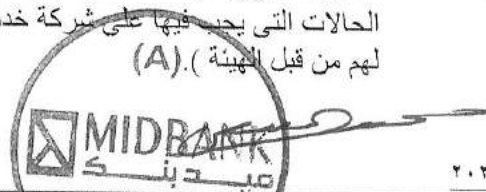 الحالات التى يجب فيها على شركة
لهم من قبل الهيئة ).(A)
MIDBANK
ميدبنك